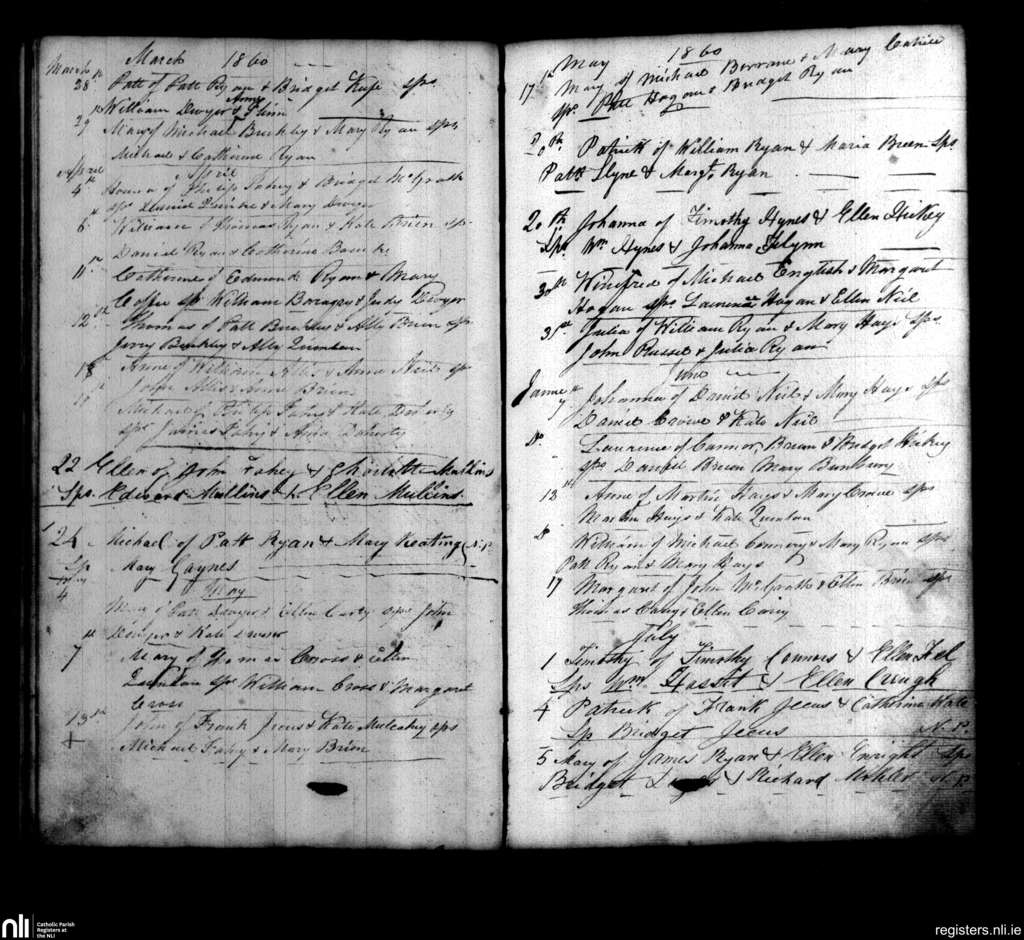 March 1860
March
28th Patt of Patt Ryan & Bridget sps
William Dwyer & Anne
29 Mary of Michael Buckley & Mary Ryan sps
Michael & Catherine Ryan
April April
4th Honora of Philip Fahey & Bridget McGrath
sps Daniel & Mary Dwyer
6th William of Thomas Ryan & Kate Brien sps
Daniel Ryan & Catherine
11th Catherine of Edmund Ryan & Mary
sps William & Judy Dwyer
12th Thomas of Patt & Ally Brien sps
Jerry Buckley & Ally Quinlan
18 Anne of William & Anne Neil sps
John & Anne Brien
Michael of Philip Fahey & Kate
sps James Fahy & Anne Doherty
22 Ellen of John Fahey & Charlotte Mullins
Sps. Edward Mullins & Ellen Mullins.
24 - Michael of Patt Ryan & Mary Keating N.P.
Sp Mary Gaynes
May May
4 Mary of Patt Dwyer & Ellen Carty sps John
Dwyer & Kate
7th Mary of Thomas Cross & Ellen
Quinlan sps William Cross & Margaret
Cross
13th John of Frank & Kate Mulcahy sps
+ Michael Fahy & Mary Brien
May 1860
17th Mary of Michael & Mary
sps Patt Hogan & Bridget Ryan
20th Patrick of William Ryan & Maria Breen Sps
Patk Slyne & Margt. Ryan
20th Johanna of Timothy Hynes & Ellen Hickey
Sps Wm Hynes & Johanna Flynn
30th Winifred of Michael English & Margaret
Hogan sps Laurence Hogan & Ellen Neil
31st Julia of William Ryan & Mary Hays sps
John Russel & Julia Ryan
June
7th Johanna of Daniel Neil & Mary Hays sps
Daniel Crowe & Kate Neil
Do. Laurence of Connor Breen & Bridget Hickey
sps Daniel Breen Mary Bunbury
13th Anne of Martin Hays & Mary Crowe sps
Martin Hays & Kate Quinlan
Do William of Michael Connors & Mary Ryan sps
Patt Ryan & Mary Hays
17 Margaret of John McGrath & Ellen Brien sps
Thomas Carey & Ellen Carey
July
1st Timothy of Timothy Connors & Ellen
Sps Wm. & Ellen Creugh
4 Patrick of Frank Jeeus & Catherine
Sp Bridget Jeeus N.P.
5 Mary of James Ryan & Ellen Enright Sps
Bridget & Richard N.P.
nli Catholic Parish
Registers at
the NLI
registers.nli.ie